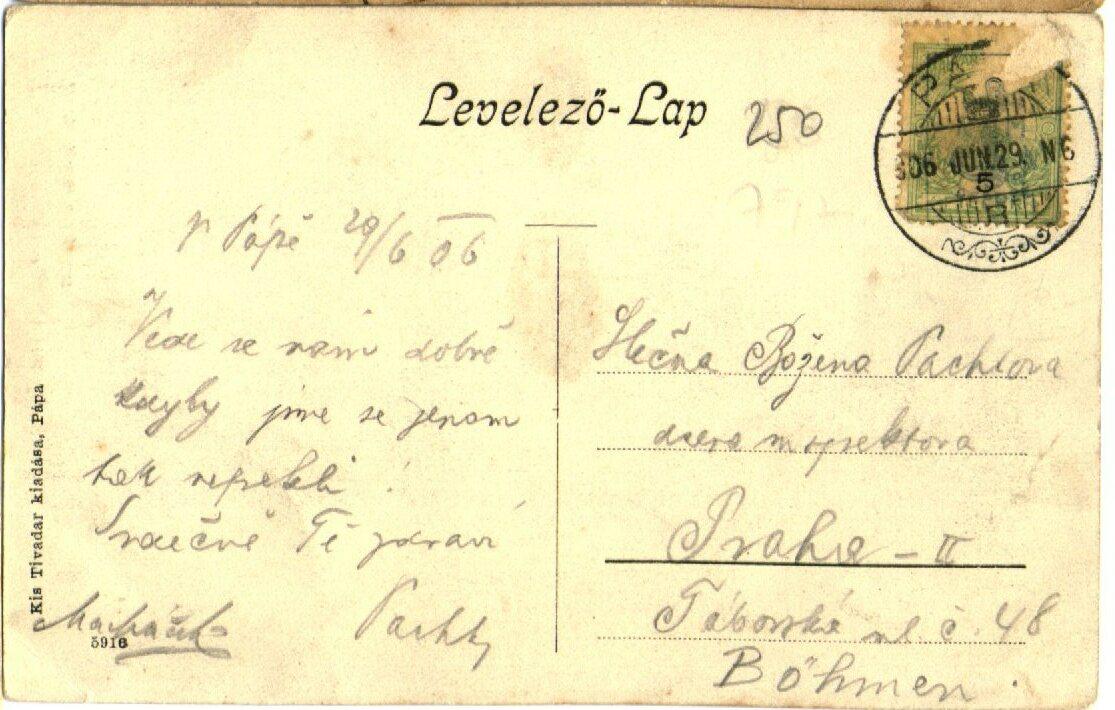 Levelező-Lap
250
PÁ
906 JUN.29. N6
5
V Pápě 29/6 06
Vede se nám dobře
kdyby jsme se jenom
tak nepekli!
Srdečně Tě zdraví
Pachty
Slečna Božena Pachtova
dcera inspektora
Praha - II
Táborská ul. č. 48
Böhmen.
Kis Tivadar kiadása, Pápa
5916